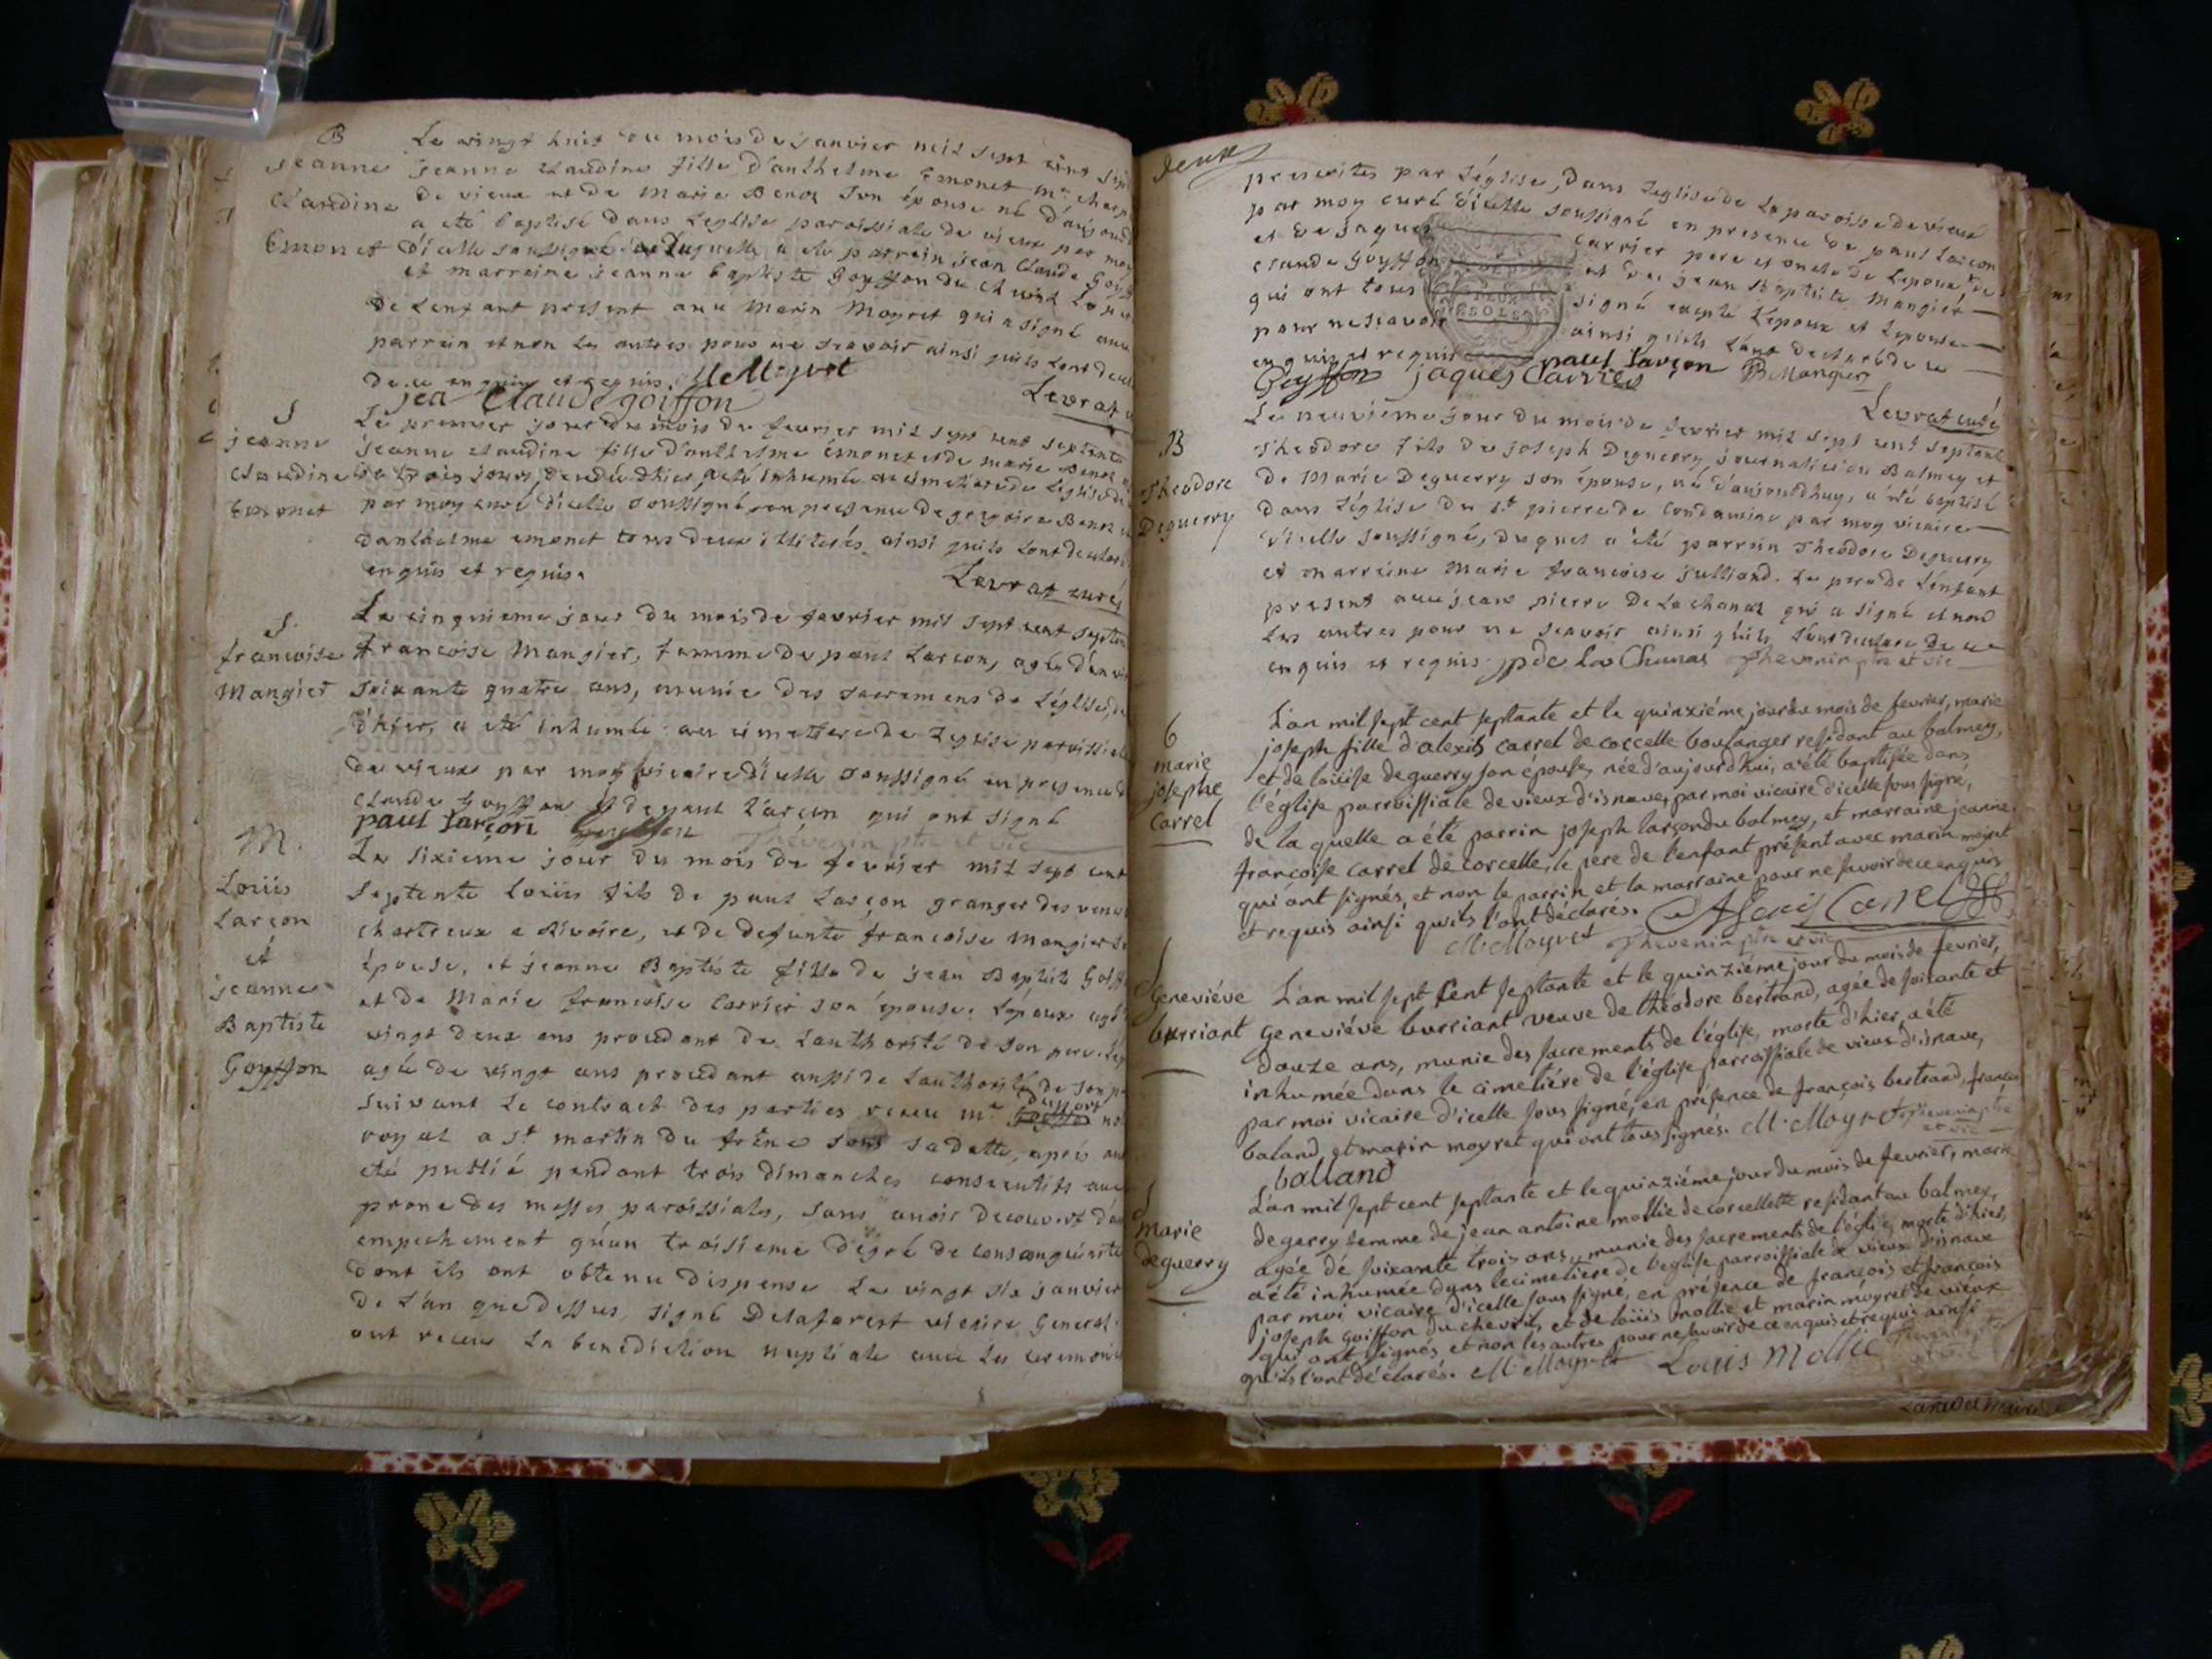 B
Le vingt huit du mois de janvier mil sept cent
jeanne jeanne claudine fille d'anthelme Emonet me
Claudine de vieux et de marie Benoz son épouse né
Emonet a eté baptisé dans l'eglise paroissiale de vieux par moy
d'icelle soussigné de laquelle a ete parrein jean claude
et marreine jeanne baptiste Goyffon du chevril
de l'enfant present avec marin moyret qui a signé avec
parrein et non les autres pour ne scavoir ainsi quils l'ont
de ce enquis et requis. M Moyret
jea Claude goiffon Levrat
S
Le premier jour du mois de fevrier mil sept cent septente
jeanne jeanne claudine fille d'anthelme Emonet et de marie Benoz
Claudine
Emonet par moy curé d'icelle soussigné, en presence de gregoire Benoz
d'anthelme emonet tous deux illiterés ainsi quils l'ont
enquis et requis. Levrat curé
S.
Le cinquieme jour du mois de fevrier mil sept cent
francoise francoise Mangier, femme de paul Larçon, agée
Mangier soixante quatre ans, munie des sacremens de l'église,
d'hier, a eté inhumée au cimettiere de l'eglise
de vieux par moy vicaire d'icelle soussigné en presence
claude Goyffon et de paul Larçon qui ont signé
paul larçon Goyffon Thevenin ptre et vic
M.
Le sixieme jour du mois de fevrier mil sept cent
Loüis septente loüis fils de paul Larçon granger des
Larçon chartreux a Rivoire, et de defunte françoise mangier
et épouse, et jeanne Baptiste fille de jean Baptiste
jeanne et de Marie francoise Carrier son épouse. L'époux agé
Baptiste vingt deux ans procedant de l'authorité de son pere.
Goyffon agée de vingt ans procedant aussi de l'authorité de son
suivant le contract des parties receu me
royal a st martin du frêne sous sa datte, après
eté publié pendant trois dimanches consecutifs
prone des messes paroissiales, sans avoir decouvert
empechement qu'un troisieme degré de consanguinité
dont ils ont obtenu dispense le vingt six janvier
de l'an que dessus, signé Delaforest vicaire General
ont receu la benediction nuptiale avec les ceremonies
deux
prescrites par l'église, dans l'eglise de la paroisse de vieux
par moy curé d'icelle soussigné en presence de paul Larçon
et de jaques carrier pere et oncle de l'epoux, de
claude Goyffon et de jean Baptiste Mangier
qui ont tous signé excepté l'epoux et l'epouse
pour ne scavoir ainsi quils l'ont declaré de ce
enquis et requis paul larçon
Goyffon jaques Carrier B Mangier
Levrat curé
Le neuvième jour du mois de fevrier mil sept cent septante
B
Theodore fils de joseph Deguerry journalier au Balmey et
Theodore de Marie Deguerry son épouse, né d'aujourdhuy, a été baptisé
Deguerry dans l'église de st pierre de Condamine par moy vicaire
d'icelle soussigné, duquel a été parrein Theodore Deguerry
et marreine Marie francoise julliand. Le pere de l'enfant
present avec jean pierre De Lachanaz qui a signé et non
les autres pour ne scavoir ainsi quils l'ont declaré de ce
enquis et requis. jp de la Chanas Thevenin ptre et vic
L'an mil sept cent septante et le quinziéme jour du mois de fevrier, marie
6
marie joseph fille d'alexis carrel de corcelle boulanger residant au balmey,
josephe et de loüise deguerry son épouse, née d'aujourd'hui, a été baptisée dans
Carrel l'église parroissiale de vieux d'isnave, par moi vicaire d'icelle sous signé,
de la quelle a été parrin joseph larçon du balmey, et marraine jeanne
françoise carrel de corcelle, le père de l'enfant présent avec marin moyret
qui ont signés, et non le parrin et la marraine pour ne savoir de ce enquis
et requis ainsi qu'ils l'ont déclarés. Alexis Carrel
M. Moyret Thevenin ptre et vic
S
Geneviéve L'an mil sept cent septante et le quinziéme jour du mois de fevrier,
burriant geneviéve burriant veuve de théodore bertrand, agée de soixante et
douze ans, munie des sacrements de l'église, morte d'hier, a été
inhumée dans le cimetiére de l'église parroissiale de vieux d'isnave,
par moi vicaire d'icelle sous signé, en présence de françois bertrand, françois
baland, et marin moyret qui ont tous signés. M. Moyret Thevenin ptre et vic
balland
S
L'an mil sept cent septante et le quinziéme jour du mois de fevrier, marie
marie degerry femme de jean antoine mollie de corcellette residant au balmey,
deguerry agée de soixante trois ans, munie des sacrements de l'église, morte d'hier,
a été inhumée dans le cimetiere de l'eglise parroissiale de vieux d'isnave
par moi vicaire d'icelle sous signé, en présence de françois et françois
joseph goiffon du chevril, et de loüis mollie et marin moyret de vieux
qui ont signés et non les autres pour ne savoir de ce enquis et requis ainsi
qu'ils l'ont déclarés. M. Moyret Louis Mollie